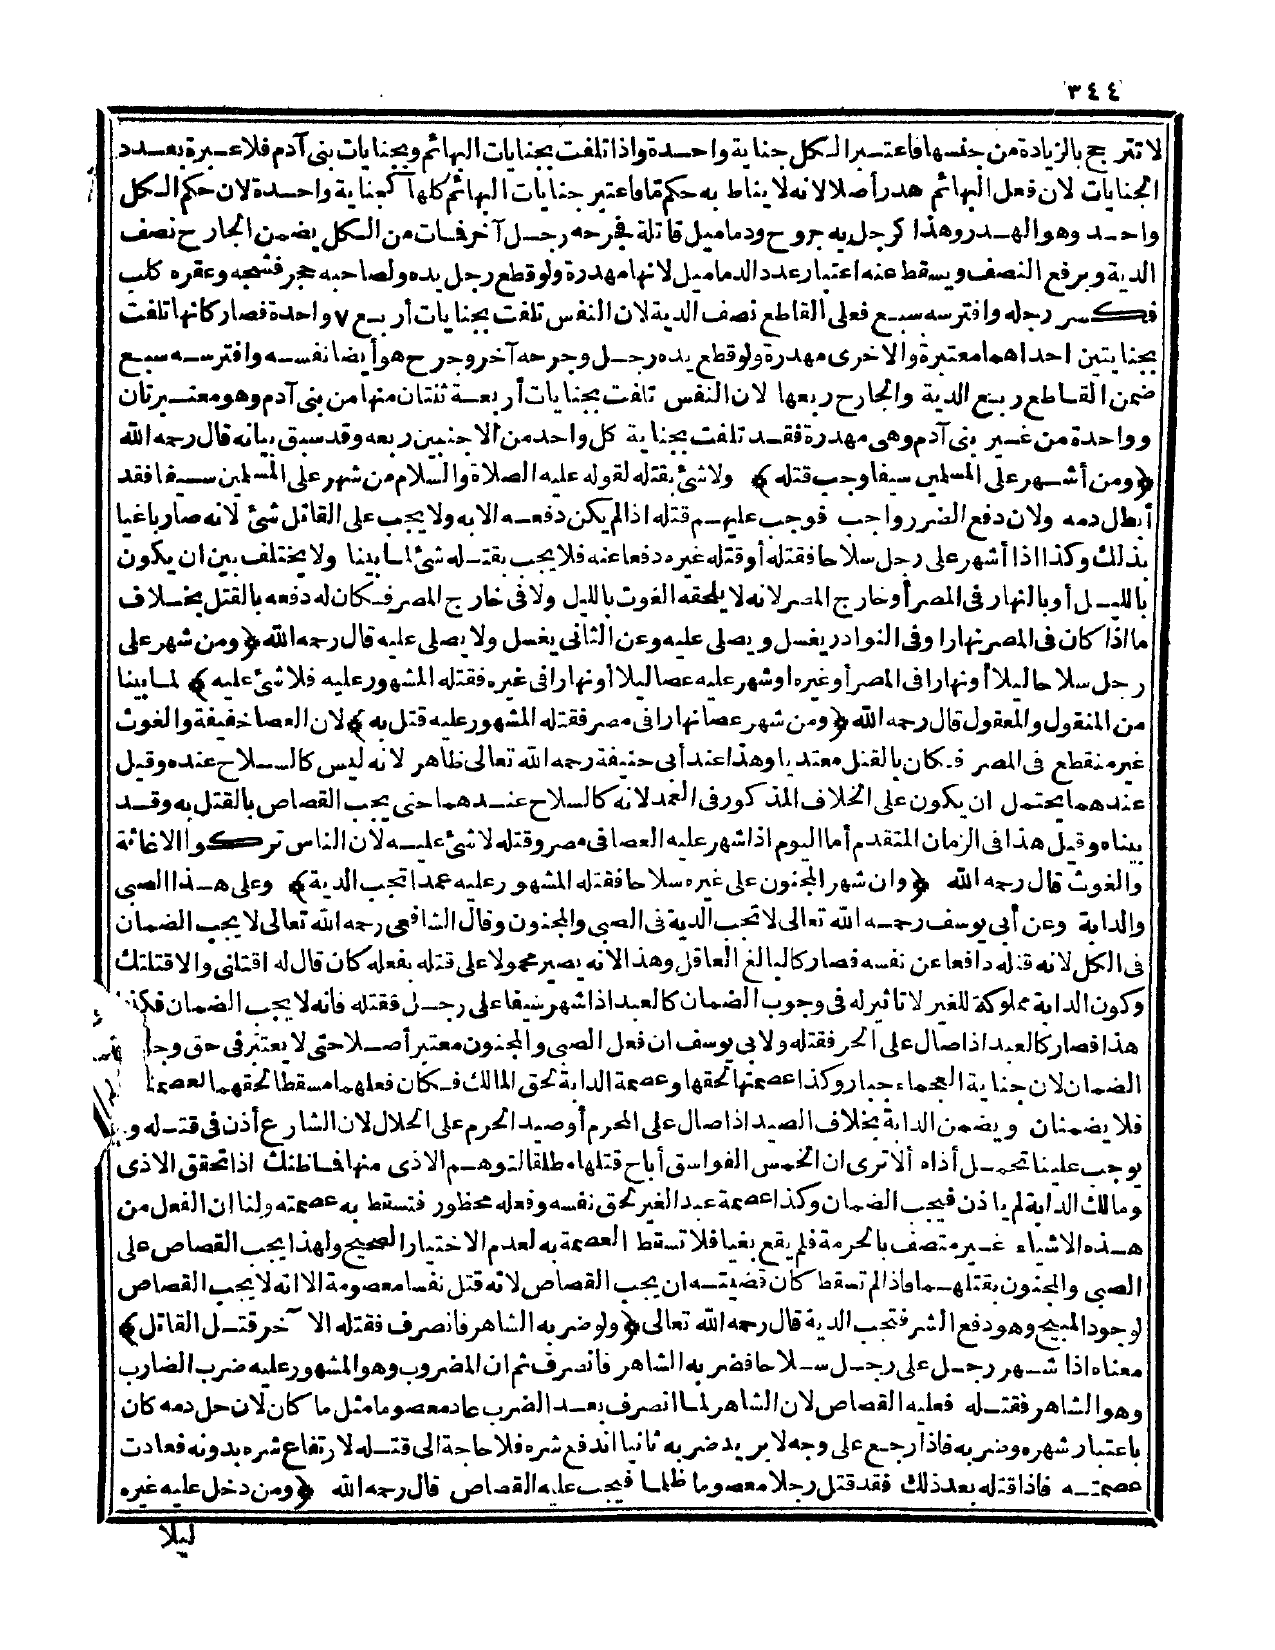 ٣٤٤
لا تترجح بالزيادة من جنسها فاعتبر الكل جناية واحدة واذا تلفت بجنايات البهائم وبجنايات بنى آدم فلا عبرة بعدد
الجنايات لان فعل البهائم هدر أصلا لانه لا يناط به حكم ما فاعتبر جنايات البهائم كلها كجناية واحدة لان حكم الكل
واحد وهو الهدر وهذا كرجل به جروح ودماميل قاتلة فجرحه رجل آخر فمات من الكل يضمن الجارح نصف
الدية ويرفع النصف ويسقط عنه اعتبار عدد الدماميل لانها مهدرة ولو قطع رجل يده ولصاحبه حجر فشجه وعقره كلب
فكسر رجله وافترسه سبع فعلى القاطع نصف الدية لان النفس تلفت بجنايات أربع ٧ واحدة فصار كانها تلفت
بجنايتين احداهما معتبرة والاخرى مهدرة ولو قطع يده رجل وجرحه آخر وجرح هو أيضا نفسه وافترسه سبع
ضمن القاطع ربع الدية والجارح ربعها لان النفس تلفت بجنايات أربعة ثنتان منها من بنى آدم وهو معتبرتان
وواحدة من غير بنى آدم وهى مهدرة فقد تلفت بجناية كل واحد من الاجنبين ربعه وقد سبق بيانه قال رحمه الله
﴿ومن أشهر على المسلمين سيفا وجب قتله﴾ ولا شئ بقتله لقوله عليه الصلاة والسلام من شهر على المسلمين سيفا فقد
أبطل دمه ولان دفع الضرر واجب فوجب عليهم قتله اذا لم يكن دفعه الا به ولا يجب على القاتل شئ لانه صار باغيا
بذلك وكذا اذا أشهر على رجل سلاحا فقتله أو قتله غيره دفعا عنه فلا يجب بقتله شئ لما بينا ولا يختلف بين ان يكون
بالليل أو بالنهار فى المصر أو خارج المصر لانه لا يلحقه الغوث بالليل ولا فى خارج المصر فكان له دفعه بالقتل بخلاف
ما اذا كان فى المصر نهارا وفى النوادر يغسل ويصلى عليه وعن الثانى يغسل ولا يصلى عليه قال رحمه الله ﴿ومن شهر على
رجل سلاحا ليلا أو نهارا فى المصر أو غيره او شهر عليه عصا ليلا أو نهارا فى غيره فقتله المشهور عليه فلا شئ عليه﴾ لما بينا
من المنقول والمعقول قال رحمه الله ﴿ومن شهر عصا نهارا فى مصر فقتله المشهور عليه قتل به﴾ لان العصا خفيفة والغوث
غير منقطع فى المصر فكان بالقتل معتديا وهذا عند أبى حنيفة رحمه الله تعالى ظاهر لانه ليس كالسلاح عنده وقيل
عندهما يحتمل ان يكون على الخلاف المذكور فى العمد لانه كالسلاح عندهما حتى يجب القصاص بالقتل به وقد
بيناه وقيل هذا فى الزمان المتقدم أما اليوم اذا شهر عليه العصا فى مصر وقتله لا شئ عليه لان الناس تركوا الاغاثة
والغوث قال رحمه الله ﴿وان شهر المجنون على غيره سلاحا فقتله المشهور عليه عمدا تجب الدية﴾ وعلى هذا الصبى
والدابة وعن أبى يوسف رحمه الله تعالى لا تجب الدية فى الصبى والمجنون وقال الشافعى رحمه الله تعالى لا يجب الضمان
فى الكل لانه قتله دافعا عن نفسه فصار كالبالغ العاقل وهذا لانه يصير محمولا على قتله بفعله كان قال له اقتلنى والا قتلتك
وكون الدابة مملوكة للغير لا تاثير له فى وجوب الضمان كالعبد اذا شهر سيفا على رجل فقتله فانه لا يجب الضمان فكذا
هذا فصار كالعبد اذا صال على الحر فقتله ولابى يوسف ان فعل الصبى والمجنون معتبر أصلا حتى لا يعتبر فى حق وجو
الضمان لان جناية العجماء جبار وكذا عصمتها لحقها وعصمة الدابة لحق المالك فكان فعلهما مسقطا لحقهما العصمة
فلا يضمنان ويضمن الدابة بخلاف الصيد اذا صال على المحرم أو صيد الحرم على الحلال لان الشارع أذن فى قتله و
يوجب علينا تحمل أذاه ألا ترى ان الخمس الفواسق أباح قتلها مطلقا لتوهم الاذى منها فما ظنك اذا تحقق الاذى
ومالك الدابة لم ياذن فيجب الضمان وكذا عصمة عبد الغير لحق نفسه وفعله محظور فتسقط به عصمته ولنا ان الفعل من
هذه الاشياء غير متصف بالحرمة فلم يقع بغيا فلا تسقط العصمة به لعدم الاختيار الصحيح ولهذا يجب القصاص على
الصبى والمجنون بقتلهما واذا لم تسقط كان قضيته ان يجب القصاص لانه قتل نفسا معصومة الا انه لا يجب القصاص
لوجود المبيح وهو دفع الشر فتجب الدية قال رحمه الله تعالى ﴿ولو ضربه الشاهر فانصرف فقتله الآخر قتل القاتل﴾
معناه اذا شهر رجل على رجل سلاحا فضربه الشاهر فانصرف ثم ان المضروب وهو المشهور عليه ضرب الضارب
وهو الشاهر فقتله فعليه القصاص لان الشاهر لما انصرف بعد الضرب عاد معصوما مثل ما كان لان حل دمه كان
باعتبار شهره وضربه فاذا رجع على وجه لا يريد ضربه ثانيا اندفع شره فلا حاجة الى قتله لارتفاع شره بدونه فعادت
عصمته فاذا قتله بعد ذلك فقد قتل رجلا معصوما ظلما فيجب عليه القصاص قال رحمه الله ﴿ومن دخل عليه غيره
ليلا